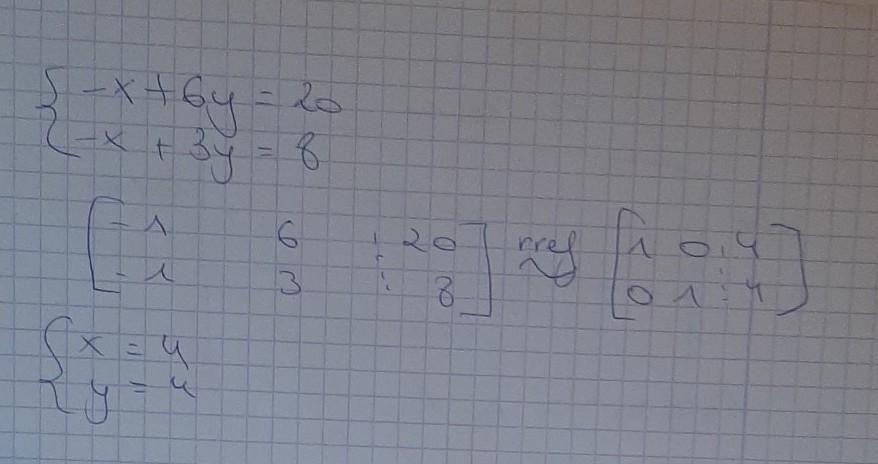 { -x + 6y = 20
-x + 3y = 8
[ -1 6 ⋮ 20 ] rref ~ [ 1 0 ⋮ 4 ]
[ -1 3 ⋮ 8 ] [ 0 1 ⋮ 4 ]
{ x = 4
y = 4